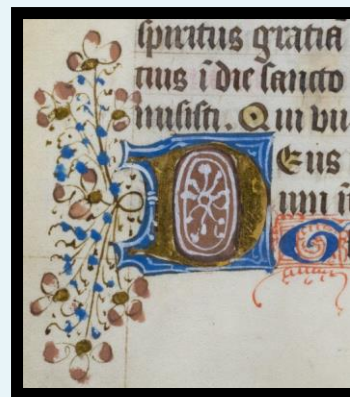 spiritus gratiā
tius ī die sancto
misisti. Qui viu
Deus